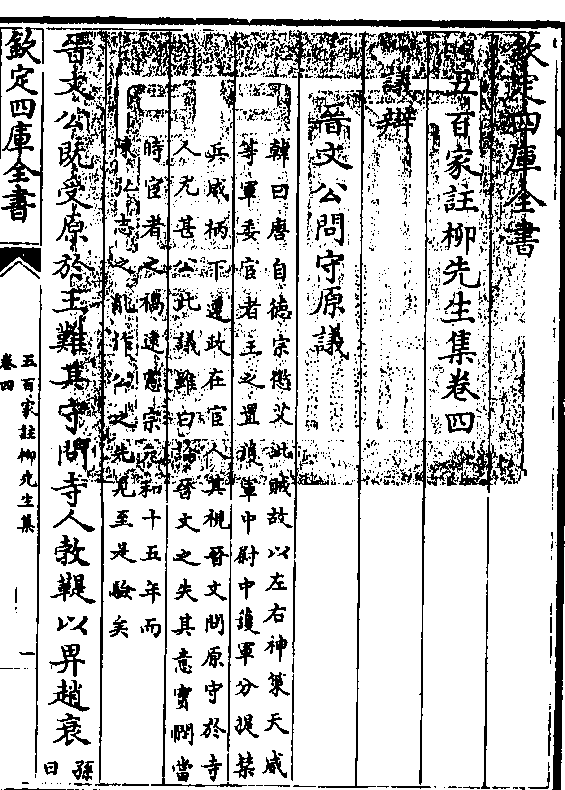 欽定四庫全書
五百家註柳先生集卷四
議辯
晉文公問守原議
韓曰唐自德宗懲艾泚賊故以左右神策天威
等軍委宦者主之置護軍中尉中護軍分提禁
兵威柄下遷政在宦人其視晉文問原守於寺
人尤甚公此議雖曰論晉文之失其意實憫當
時宦者之禍逮憲宗元和十五年而
陳弘志之亂作公之先見至是驗矣
晉文公既受原於王難其守問寺人教鞮以畀趙衰
孫
曰
欽定四庫全書
五百家註柳先生集
卷四
一